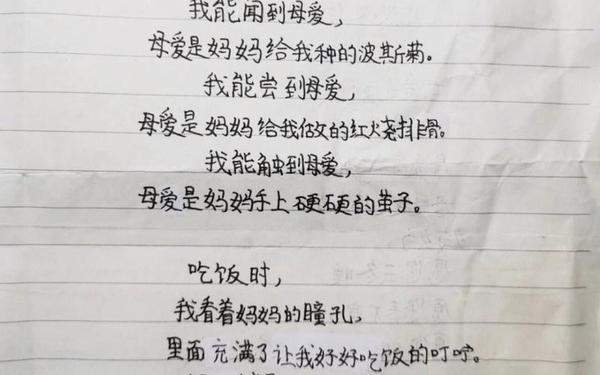 我能闻到母爱，
母爱是妈妈给我种的波斯菊。
我能尝到母爱，
母爱是妈妈给我做的红火烧排骨。
我能触到母爱，
母爱是妈妈手上硬硬的茧子。
吃饭时，
我看着妈妈的瞳孔，
里面充满了让我好好吃饭的叮咛。